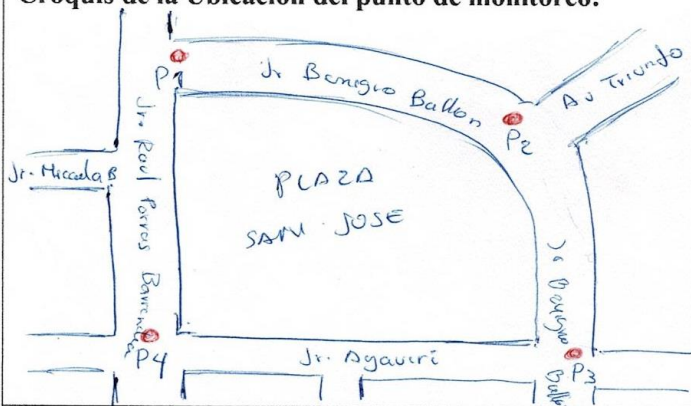 Croquis de la Ubicación del punto de monitoreo:
P1
Jr Benigno Ballon
Av Triunfo
P2
Jr. Micaela B
Jr. Raul Porras Barrenechea
PLAZA
SAN JOSE
Jr Benigno Ballon
P4
Jr. Ayaviri
P3